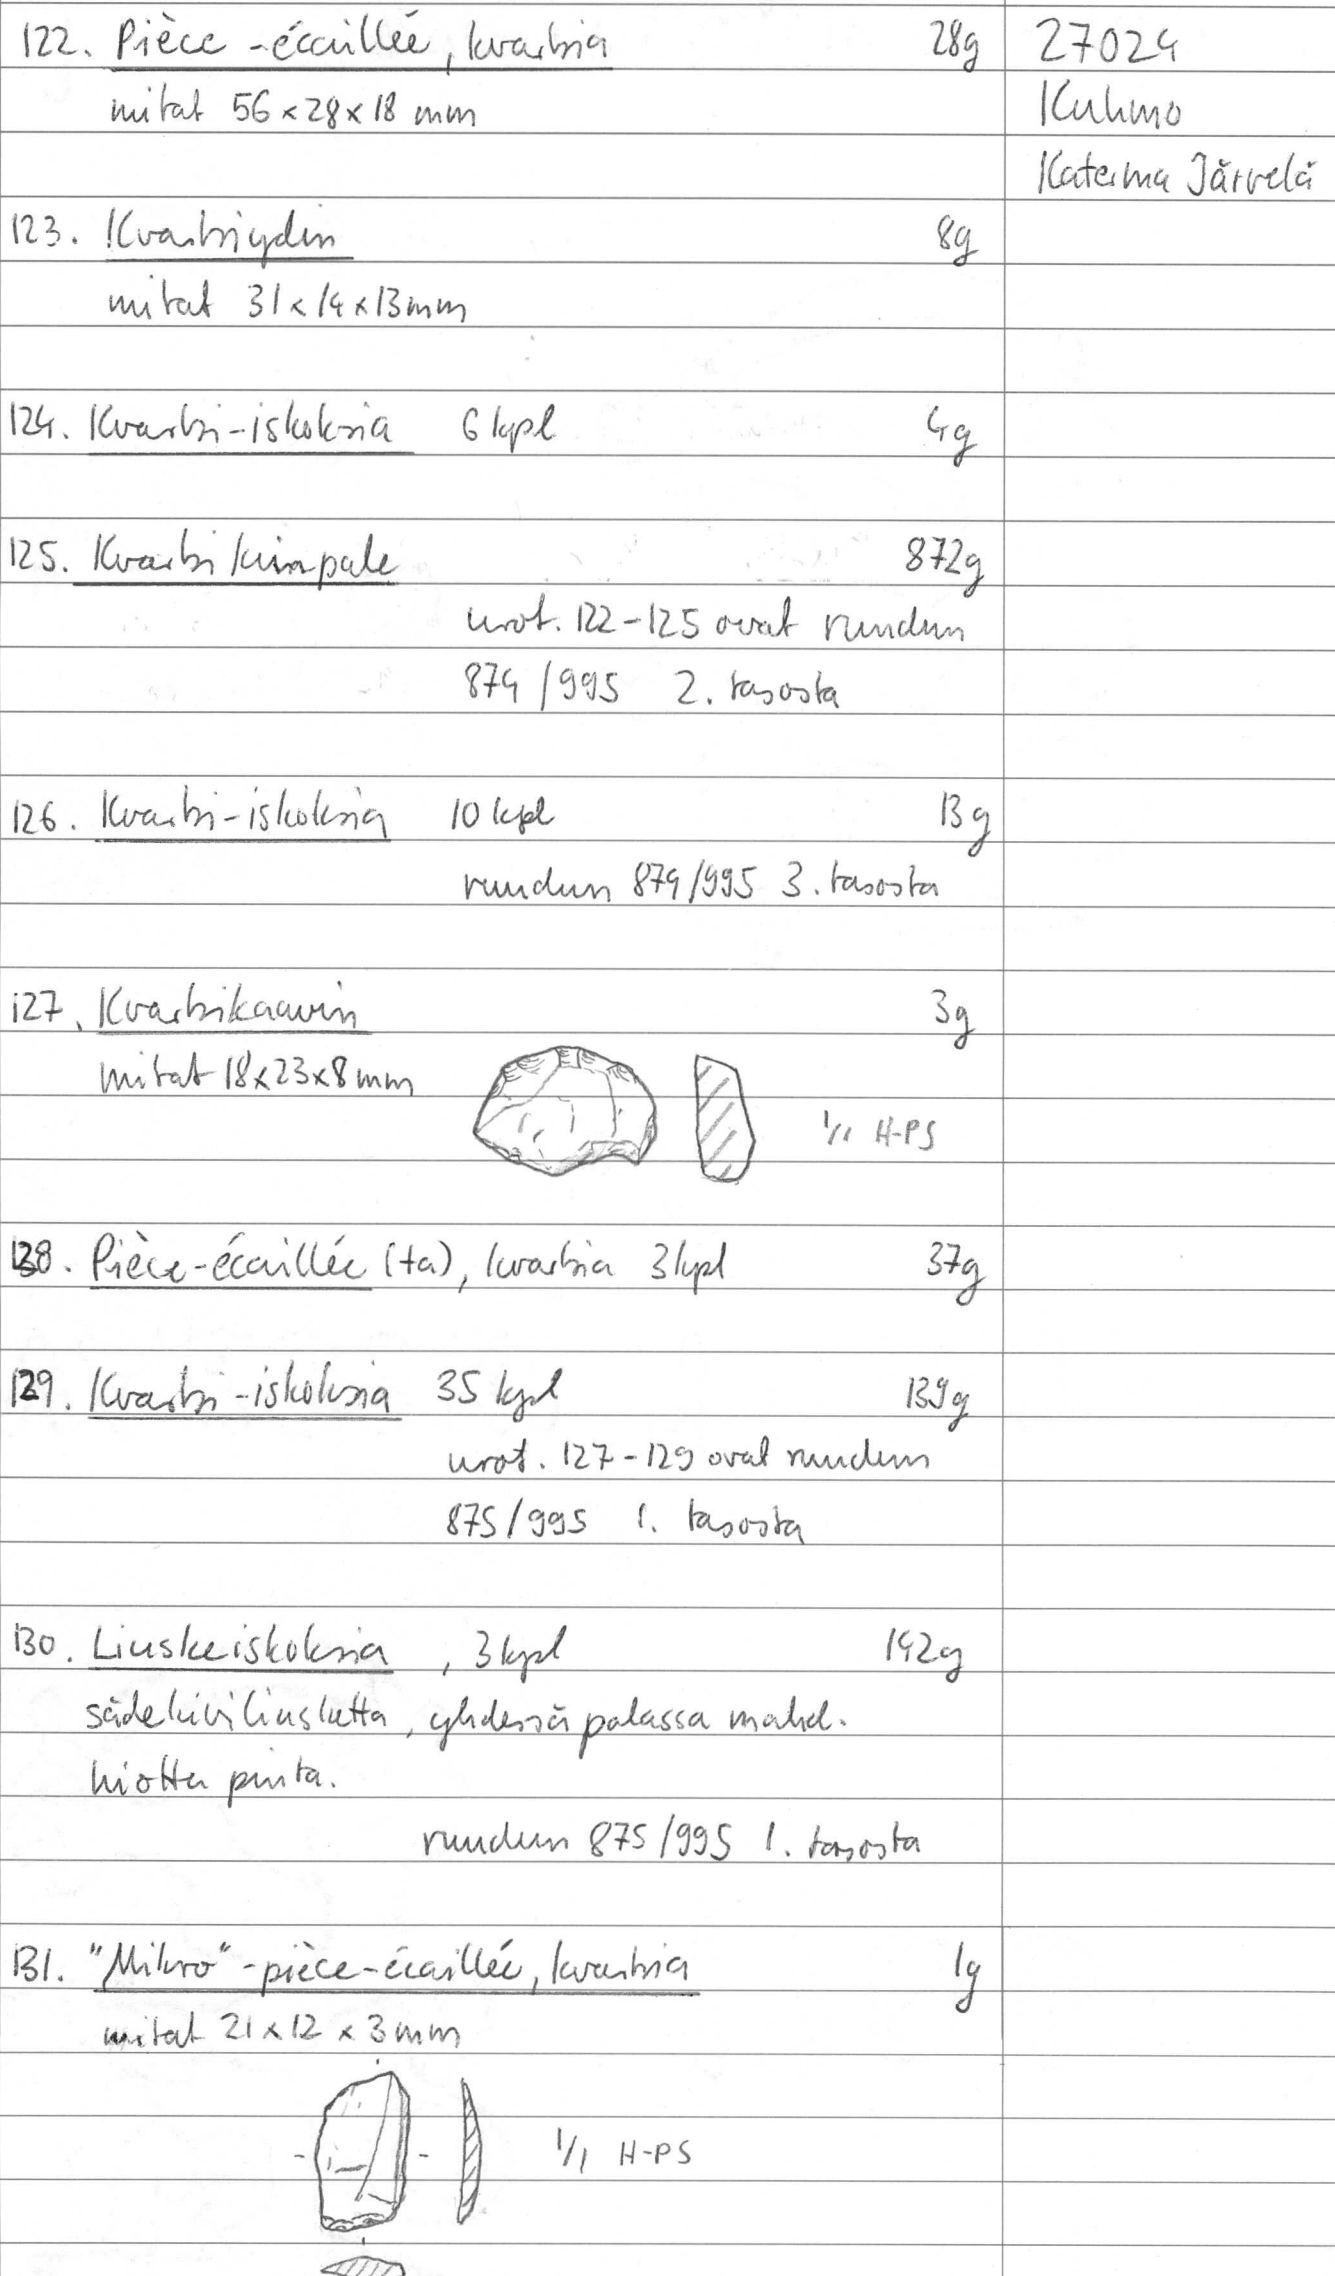 122. Pièce-écaillée, kvartsia 28g
mitat 56x28x18 mm
27024
Kuhmo
Katerma Järvelä
123. Kvartsiydin 8g
mitat 31x14x13mm
124. Kvartsi-iskoksia 6 kpl 4g
125. Kvartsikimpale 872g
nrot. 122-125 ovat ruudun
874/995 2. tasosta
126. Kvartsi-iskoksia 10 kpl 13g
ruudun 874/995 3. tasosta
127. Kvartsikaavin 3g
mitat 18x23x8mm
1/1 H-PS
128. Pièce-écaillée (ta), kvartsia 3 kpl 37g
129. Kvartsi-iskoksia 35 kpl 139g
nrot. 127-129 ovat ruudun
875/995 1. tasosta
130. Liuskeiskoksia, 3 kpl 142g
sädekiviliusketta, yhdessä palassa mahd.
hiottu pinta.
ruudun 875/995 1. tasosta
131. "Mikro"-pièce-écaillée, kvartsia 1g
mitat 21x12x3mm
1/1 H-PS